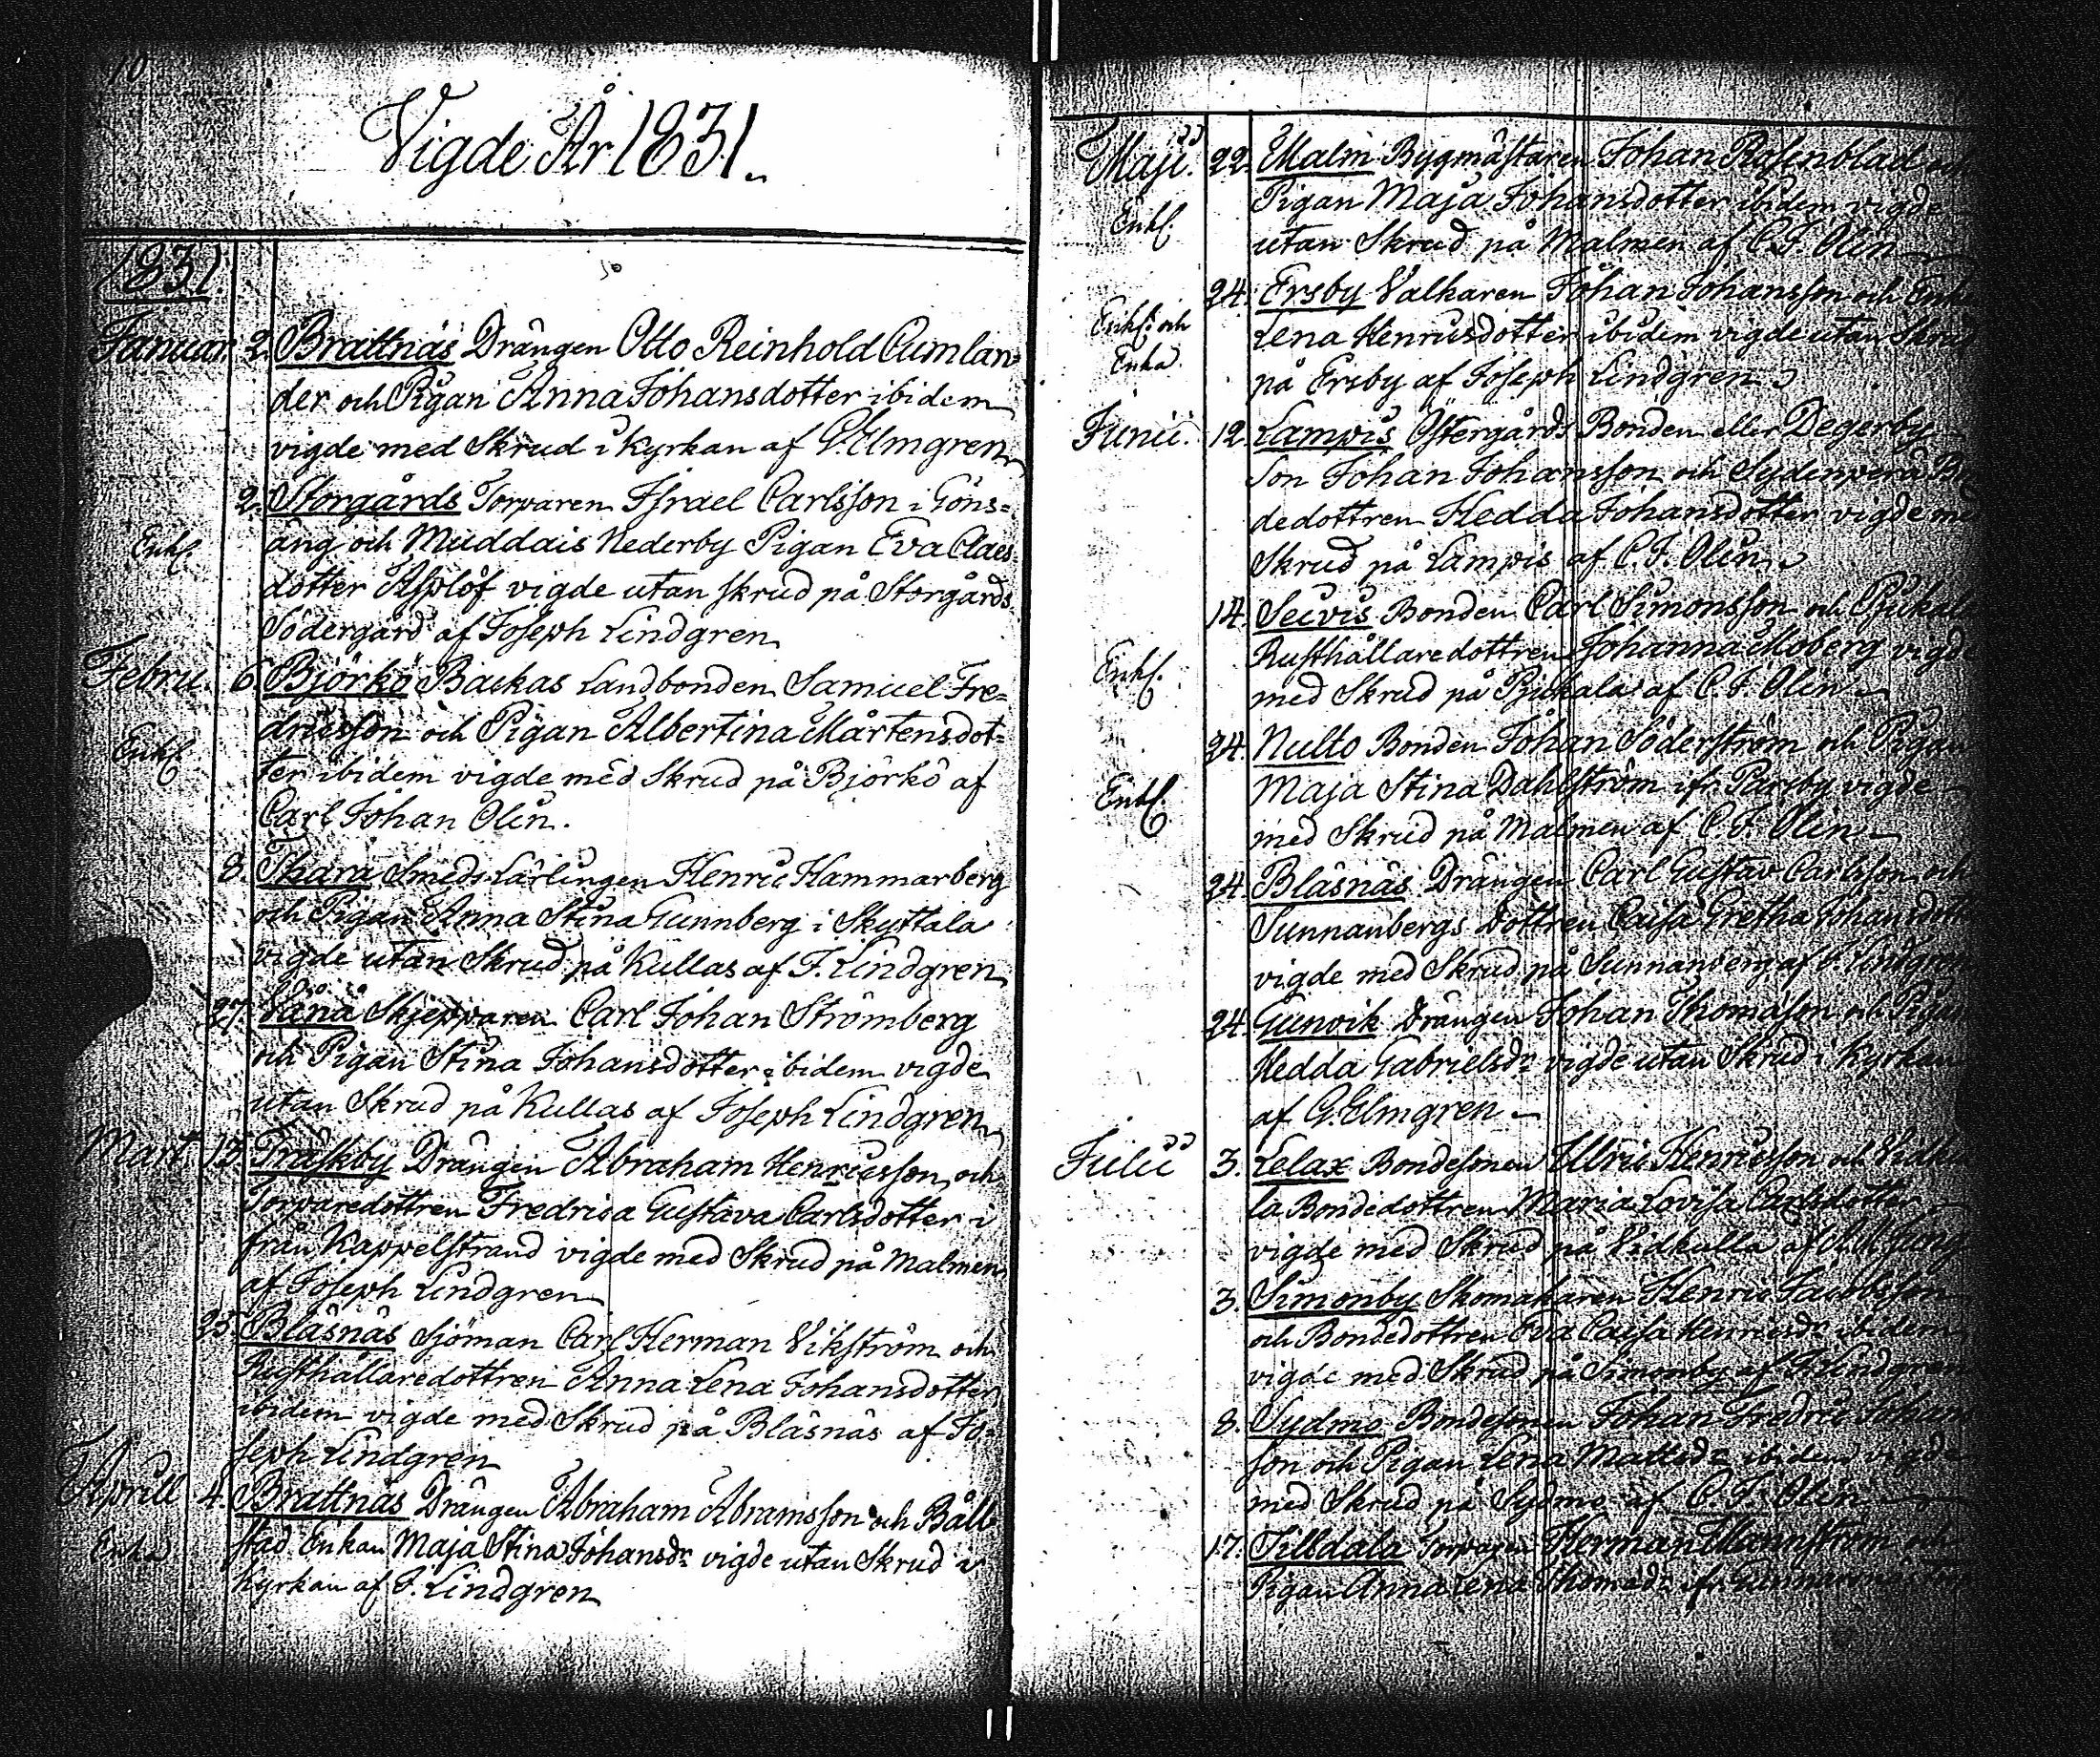 10
Vigde År 1831.
1831.
Januar. 2. Brattnäs Drängen Otto Reinhold Cumlan=
der och Pigan Anna Johansdotter ibidem
vigde med Skrud i Kyrkan af G. Elmgren
2. Storgårds Torparen Israel Carlsson i Göns=
Enkl. äng och Muddais Nederby Pigan Eva Claes
dotter Asplöf vigde utan skrud på Storgårds
Södergård af Joseph Lindgren
Febru. 6. Björkö Backas Landbonden Samuel Fre=
Enkl. dricsson och Pigan Albertina Mårtensdot=
ter ibidem vigde med Skrud på Björkö af
Carl Johan Olin.
8. Smeds Lärlingen Henric Hammarberg
och Pigan Anna Stina Gunnberg i Skyttala
vigde utan Skrud på Kullas af J. Lindgren
27. Vånå Skjepparen Carl Johan Strömberg
och Pigan Stina Johansdotter ibidem vigde
utan Skrud på Kullas af Joseph Lindgren
Mart. 13. Träskby Drängen Abraham Henricsson och
Torparedottren Fredrica Gustava Carlsdotter i
från Kappelstrand vigde med Skrud på Malmen
af Joseph Lindgren
25. Bläsnäs Sjöman Carl Herman Vikström och
Rusthållaredottren Anna Lena Johansdotter
ibidem vigde med Skrud på Bläsnäs af Jo=
seph Lindgren
Aprill 4. Brattnäs Drängen Abraham Abramsson och Båll
Enka stad Enkan Maja Stina Johansdr vigde utan Skrud i
Kyrkan af J. Lindgren
Maji. 22. Malm Bygmästaren Johan Rosenblad och
Pigan Maja Johansdotter ibidem vigde
Enkl. utan Skrud på Malmen af C. J. Olin
24. Ersby Valkaren Johan Johansson och Enk
Enkl. och Lena Henricsdotter ibidem vigde utan Skrud
Enka. på Ersby af Joseph Lindgren
Junii. 12. Lampis Östergårds Bonden eller Degerby
Son Johan Johansson och Bon
dedottren Hedda Johansdotter vigde med
Skrud på Lampis af C. J. Olin
14. Seivis Bonden Carl Simonsson och Pjukala
Enkl. Rusthållaredottren Johanna Moberg vigde
med Skrud på Pjukala af C. J. Olin
24. Nulto Bonden Johan Söderström och Pigan
Enkl. Maja Stina Dahlström ifr. Parsby vigde
med Skrud på Malmen af C. J. Olin
24. Bläsnäs Drängen Carl Gustav Carlsson och
Sunnanbergs Dottren Caisa Gretha Johansdott
vigde med Skrud på Sunnanberg af J. Lindgren
24. Gunvik Drängen Johan Thomasson och Pigan
Hedda Gabrielsdr vigde utan Skrud i Kyrkan
af G. Elmgren
Julii 3. Lelax Bondesonen Ulric Henricsson och Vidku
la Bondedottren Maria Lovisa Carlsdotter
vigde med Skrud på Vidkulla af
3. Simonby Skomakaren Henric Jacobsson
och Bondedottren Eva Caisa Henricsdr ibidem
vigde med Skrud på Simonby af J. Lindgren
8. Sydmo Bondesonen Johan Fredric Johans
son och Pigan Lena Mattsdr ibidem vigde
med Skrud på Sydmo af C. J. Olin
17. Tilldala Torparen Herman Mannström och
Pigan Anna Lena Thomasdr ifr.